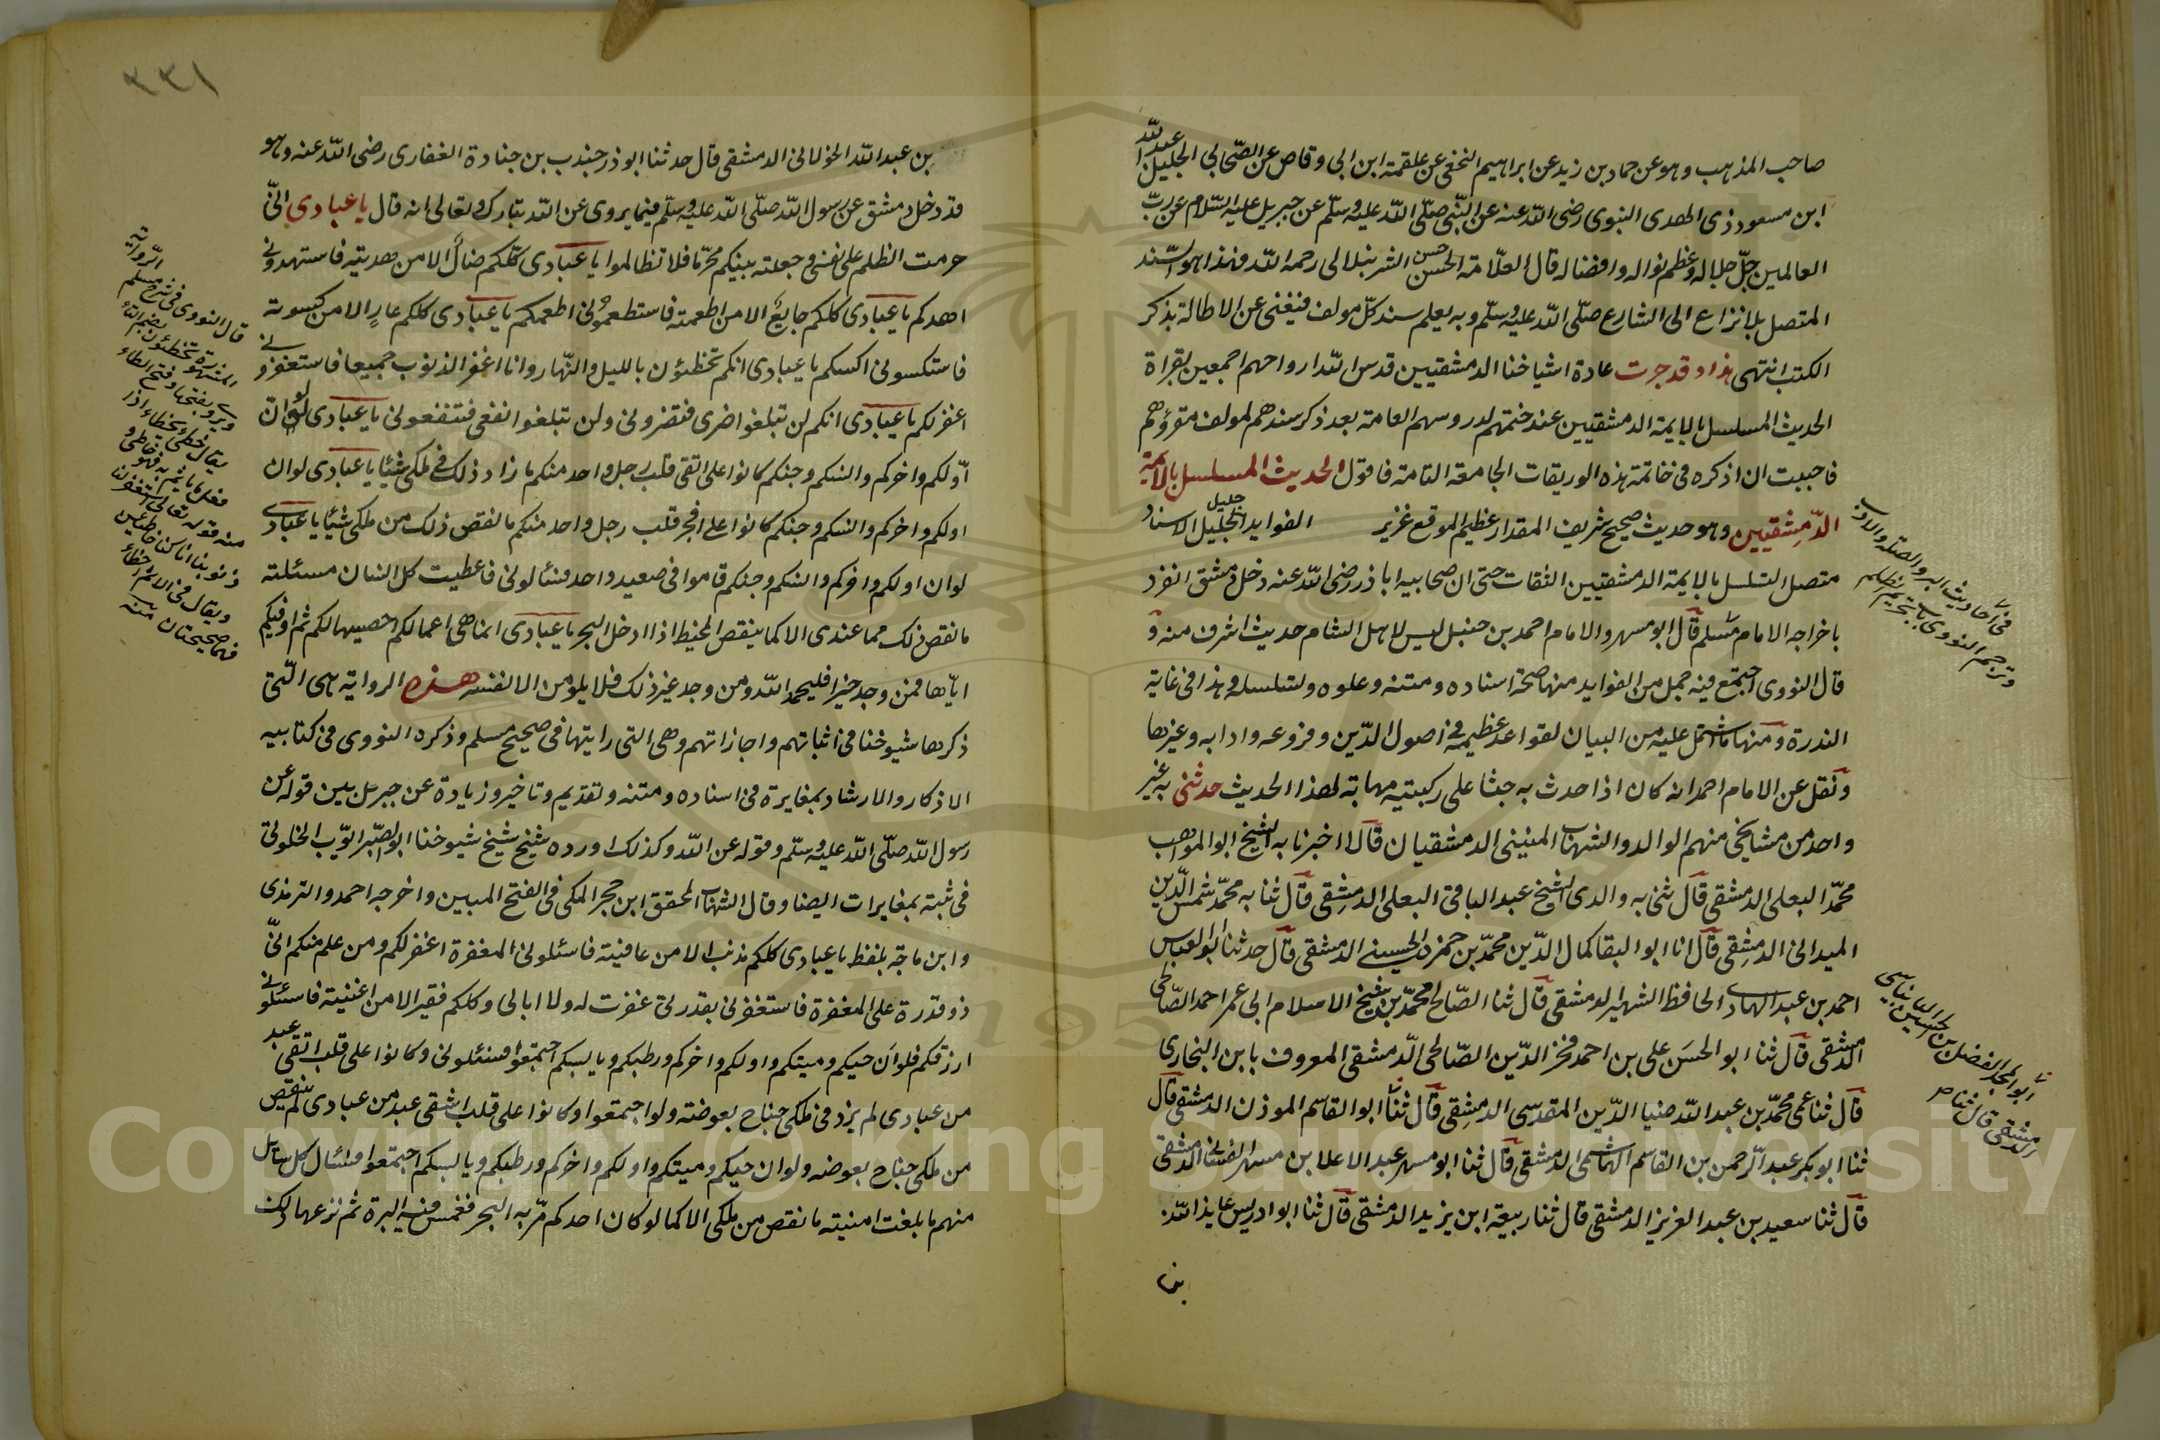 صاحب المذهب وهو عن حماد بن زيد عن ابراهيم النخعى عن علقمة ابن ابى وقاص عن الصّحابى الجليل عبد اللّٰه
ابن مسعود ذى الهدى النبوى رضى اللّٰه عنه عن النّبى صلّى اللّٰه عليه وسلّم عن جبريل عليه السّلام عن ربّ
العالمين جلّ جلاله وعظم نواله وافضاله قال العلّامة الحسن حسن الشرنبلالى رحمه اللّٰه فهذا هو السّند
المتصل بلا نزاع الى الشارع صلّى اللّٰه عليه وسلّم وبه يعلم سند كلّ مولف فيغنى عن الاطالة بذكر
الكتب انتهى هذا وقد جرت عادة اشياخنا الدمشقيين قدس اللّٰه ارواحهم اجمعين بقراة
الحديث المسلسل بالايمة الدمشقيين عند ختمهم لدروسهم العامة بعد ذكر سندهم لمولف مقروهم
فاحببت ان اذكره فى خاتمة هذه الوريقات الجامعة التامة فاقول الحديث المسلسل بالايمة
الدّمشقيين وهو حديث صحيح شريف المقدار عظيم الموقع غزير الفوايد الجليل جليل الاسناد
متصل التسلسل بالايمة الدمشقيين الثقات حتى ان صحابيه اباذر رضى اللّٰه عنه دخل دمشق انفرد
باخراجه الامام مسلم قال ابو مسهر والامام احمد بن حنبل ليس لاهل الشام حديث اشرف منه و
قال النووى اجتمع فيه جمل من الفوايد منها صحة اسناده ومتنه وعلوه وتسلسله وهذا فى غاية
الندرة ومنها ما اشتمل عليه من البيان لقواعد عظيمة فى اصول الدّين وفروعه وادابه وغيرها
ونقل عن الامام احمد انه كان اذا حدث به جثا على ركبتيه مهابة لهذا الحديث حدثنى به غير
واحد من مشايخى منهم الوالد والشهاب المنينى الدمشقيان قالا اخبرنا به الشيخ ابو المواهب
محمّد البعلى الدمشقى قال ثنى به والدى الشيخ عبد الباقى البعلى الدمشقى قال ثنا به محمّد شمس الدّين
الميدانى الدمشقى قال انا ابو البقا كمال الدّين محمّد بن حمزة الحسينى الدمشقى قال حدثنا ابو العباس
احمد بن عبد الهادى الحافظ الشهير الدمشقى قال ثنا الصّالح محمّد بن شيخ الاسلام ابى عمر احمد الصّالحى
الدّمشقى قال ثنا ابو الحسن على بن احمد فخر الدّين الصّالحى الدّمشقى المعروف بابن البخارى
قال ثنا عمى محمّد بن عبد اللّٰه ضيا الدّين المقدسى الدمشقى قال ثنا ابو القاسم الموذن الدمشقى قال
ثنا ابو بكر عبد الرّحمن بن القاسم الهاشمى الدمشقى قال ثنا ابو مسهر عبد الاعلا بن مسهر الغسانى الدمشقى
قال ثنا سعيد بن عبد العزيز الدمشقى قال ثنا ربيعة ابن يزيد الدمشقى قال ثنا ابو ادريس عايذ اللّٰه
بن
فى احاديث البر والصلة والادب
وترجم النووى باب تحريم الظلم
ثنا ابو المجد الفضل بن الحسين البانياسى
الدمشقى قال ثنا ح
٣٣١
بن عبد اللّٰه الخولانى الدمشقى قال حدثنا ابو ذر جندب بن جنادة الغفارى رضى اللّٰه عنه وهو
قد دخل دمشق عن رسول اللّٰه صلّى اللّٰه عليه وسلّم فيما يروى عن اللّٰه تبارك وتعالى انه قال يا عبادى انّى
حرمت الظلم على نفسى وجعلته بينكم محرّما فلا تظالموا يا عبادى كلكم ضالّ الا من هديته فاستهدونى
اهدكم يا عبادى كلكم جايع الا من اطعمته فاستطعمونى اطعمكم يا عبادى كلكم عارٍ الا من كسوته
فاستكسونى اكسكم يا عبادى انكم تخطئون بالليل والنّهار وانا اغفر الذنوب جميعا فاستغفرونى
اغفر لكم يا عبادى انكم لن تبلغوا ضرى فتضرونى ولن تبلغوا نفعى فتنفعونى يا عبادى لو ان
اوّلكم واخركم وانسكم وجنكم كانوا على اتقى قلب رجل واحد منكم ما زاد ذلك فى ملكى شيئا يا عبادى لو ان
اولكم واخركم وانسكم وجنكم كانوا على افجر قلب رجل واحد منكم ما نقص ذلك من ملكى شيئا يا عبادى
لو ان اولكم واخركم وانسكم وجنكم قاموا فى صعيد واحد فسئالونى فاعطيت كل انسان مسئلته
ما نقص ذلك مما عندى الا كما ينقص المخيط اذا ادخل البحر يا عبادى انما هى اعمالكم احصيها لكم ثم اوفيكم
ايّاها فمن وجد خيرا فليحمد اللّٰه ومن وجد غير ذلك فلا يلومن الا نفسه هذه الرواية هى الّتى
ذكرها شيوخنا فى اثباتهم واجازاتهم وهى التى رايتها فى صحيح مسلم وذكره النووى فى كتابيه
الاذكار والارشاد بمغايرة فى اسناده ومتنه وتقديم وتاخير وزيادة عن جبريل بين قوله عن
رسول اللّٰه صلّى اللّٰه عليه وسلّم وقوله عن اللّٰه وكذلك اورده شيخ شيخ شيوخنا ابو الصّبر ايّوب الخلوتى
فى ثبته بمغايرات ايضا وقال الشهاب المحقق ابن حجر المكى فى الفتح المبين واخرجه احمد والترمذى
وابن ماجة بلفظ يا عبادى كلكم مذنب الا من عافيته فاسئلونى المغفرة اغفر لكم ومن علم منكم انّى
ذو قدرة على المغفرة فاستغفرنى بقدرتى غفرت له ولا ابالى وكلكم فقير الا من اغنيته فاسئلونى
ارزقكم فلو ان حيكم وميتكم واولكم واخركم ورطبكم ويابسكم اجتمعوا فسئلونى وكانوا على قلب اتقى عبد
من عبادى لم يزد فى ملكى جناح بعوضة ولو اجتمعوا وكانوا على قلب اشقى عبد من عبادى لم ينقص
من ملكى جناح بعوضه ولو ان حيكم وميتكم واولكم واخركم ورطبكم ويابسكم اجتمعوا فسئال كل سايل
منهم ما بلغت امنيته ما نقص من ملكى الا كما لو كان احدكم مرّ به البحر فغمس فيه ابرة ثم نزعها ذلك
الرّواية
قال النووى فى شرح مسلم
المشهورة تخطئون بضم التاء
وروى بفتحها وفتح الطاء
يقال خطى يخطاء اذا
فعل ما ياثم به فهو خاطى و
منه قوله تعالى استغفر لنا
ذنوبنا انا كنا خاطئين
ويقال فى الاثم اخطاء
فهما صحيحتان منه
Copyright © King Saud University